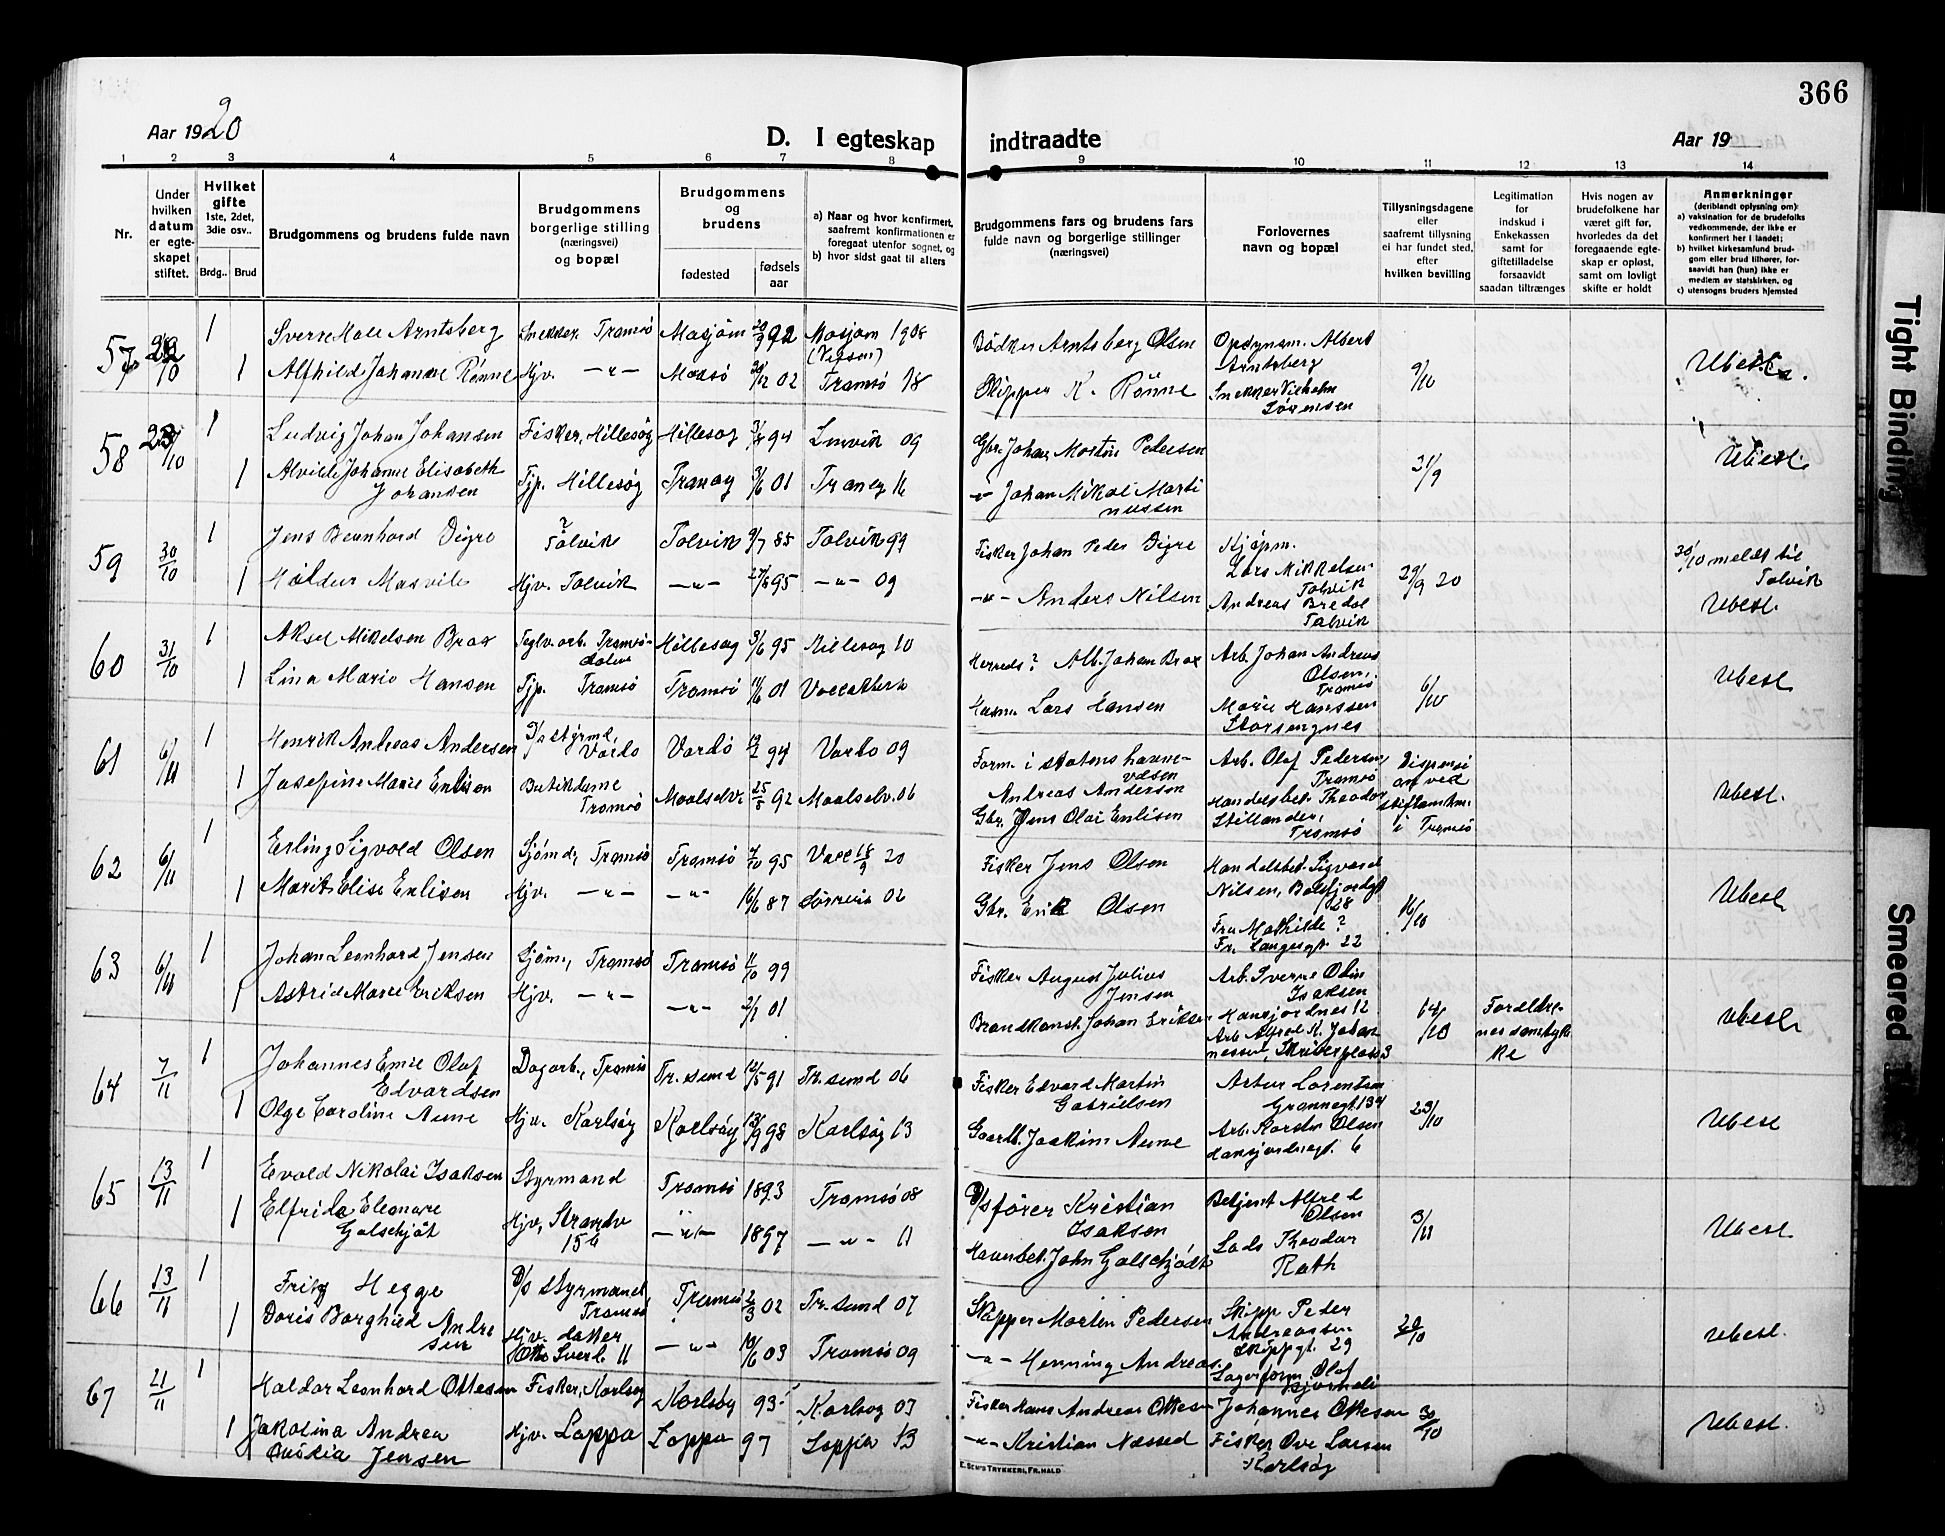 366
Aar 1920
D. I egteskap indtraadte
Aar 19
1 2 3 4 5 6 7 8 9 10 11 12 13 14
Nr.
Under hvilken datum er egteskapet stiftet.
Hvilket gifte
1ste, 2det, 3die osv..
Brdg.. Brud
Brudgommens og brudens fulde navn
Brudgommens borgerlige stilling (næringsvei) og bopæl
Brudgommens og brudens
fødested
fødsels aar
a) Naar og hvor konfirmert, saafremt konfirmationen er foregaat utenfor sognet, og
b) hvor sidst gaat til alters
Brudgommens fars og brudens fars fulde navn og borgerlige stillinger (næringsvei)
Forlovernes navn og bopæl
Tillysningsdagene eller saafremt tillysning ei har fundet sted, efter hvilken bevilling
Legitimation for indskud i Enkekassen samt for giftetilladelse forsaavidt saadan tiltrænges
Hvis nogen av brudefolkene har været gift før, hvorledes da det foregaaende egteskap er opløst, samt om lovligt skifte er holdt
Anmerkninger (deriblandt oplysning om):
a) vaksination for de brudefolks vedkommende, der ikke er konfirmert her i landet;
b) hvilket kirkesamfund brudgom eller brud tilhører, forsaavidt han (hun) ikke er medlem av statskirken, og
c) utensogns bruders hjemsted
57 22/10 1 Sverre Hall Arntsberg Snekker, Tromsø Mosjøen 92 Mosjøen 1908 (Vefsen) Bødker Arntsberg Olsen Opsynsm. Albert Arntsberg 9/10 Ubesl.
1 Alfhild Johanne Rønne Hjv. —"— 02 Tromsø 18 Skipper K. Rønne Snekker Vilhelm Sørensen
58 23/10 1 Ludvig Johan Johansen Fisker, Hillesøy Hillesøy 94 Lenvik 09 Gbr. Johan Martin Pedersen Ubesl
1 Alvilde Johanne Elisabeth Johansen Tjp. Hillesøy Tranøy 01 Tranøy 16 —"— Johan Mikal Martinussen
59 30/10 1 Jens Bernhard Digre ? Talvik Talvik 9/7 85 Talvik 99 Fisker Johan Peder Digre Kjøpm. Lars Mikkelsen Talvik 29/9 20 30/10 meldt til Talvik
1 Hjv. Talvik —"— 95 —"— 09 —"— Anders Nilsen Andreas Bredal Talvik Ubesl.
60 31/10 1 Aksel Mikelsen Brox Teglv.arb. Tromsdalen Hillesøy 95 Hillesøy 10 Johan Brox Arb. Johan Andreas Olsen, Tromsø 6/10 Ubesl.
1 Lina Marie Hansen Tjp. Tromsø Tromsø 01 Husm. Lars Hansen Marie Hanssen Storsengnes
61 6/11 1 Henrik Andreas Andersen Vardø Vardø 94 Vardø 09 Form. i statens havnevæsen Andreas Andersen Arb. Olaf Pedersen, Tromsø Dispensation ved stiftamtm. i Tromsø Ubesl.
1 Josefine Marie Enlisen Butikdame Tromsø Maalselv. 25/5 92 Maalselv. 06 Gbr. Jens Olai Enlisen Handelsbet. Theodor Stillander, Tromsø
62 6/11 1 Erling Sigvald Olsen Sjømd, Tromsø Tromsø 7/10 95 20 Fisker Jens Olsen Handelsbet. Sigvard Nilsen, Balsfjordgt 28 16/10 Ubesl
1 Marit Elise Enlisen Hjv. —"— —"— 87 Sørreisa 02 Gbr. Erik Olsen Fru Mathilde ? Fr. Langesgt. 22
63 6/11 1 Johan Leonhard Jensen Sjøm., Tromsø Tromsø 11/10 99 Fisker August Julius Jensen Arb. Sverre Odin Isaksen 14/10 Forældrenes samtykke Ubesl
1 Astrid Marie Eriksen Hjv. —"— —"— 01 Brandkonst. Johan Eriksen Hansjordnes 12 Arb. Alfred K. Johannessen, Skriverplass 3
64 7/11 1 Johannes Emil Olaf Edvardsen Dagarb., Tromsø Tr.sund 91 Tr.sund 06 Fisker Edvard Martin Gabrielsen Artur Lorentsen Grønnegt. 134 23/10 Ubesl
1 Olga Caroline Aune Hjv. Karlsøy Karlsøy 98 Karlsøy 13 Gaardb. Joakim Aune Arb. Karsten Olsen Hansjordnesgt. 6
65 13/11 1 Evald Nikolai Isaksen Styrmand Tromsø 1893 Tromsø 08 D/sfører Kristian Isaksen Betjent Alfred Olsen 3/11 Ubesl
1 Elfrida Eleonore Galschjøt Hjv, Strandv 154 —"— 1897 —"— 11 Havnbet. John Galschjødt Lods Theodor Rath
66 13/11 1 Fritz Hegge D/s styrmand Tromsø Tromsø 2/3 02 Tr.sund 07 Skipper Morten Pedersen Skipp Peder Andreassen Skippgt. 29 20/10 Ubesl.
1 Doris Borghild Andresen Hjv. datter 11 —"— 10/6 03 Tromsø 09 —"— Henning Andreas. Lagerform Olaf
67 21/11 1 Haldor Leonhard Ottesen Fisker, Karlsøy Karlsøy 93 Karlsøy 07 Fisker Hans Andreas Ottesen Johannes Ottesen 30/10 Ubesl.
1 Jakolina Andrea Jensen Hjv. Loppa Loppa 97 Loppa 13 —"— Kristian Næsset Fisker Ove Larsen Karlsøy
E. SEM'S TRYKKERI, FR.HALD
Tight Binding
Smeared